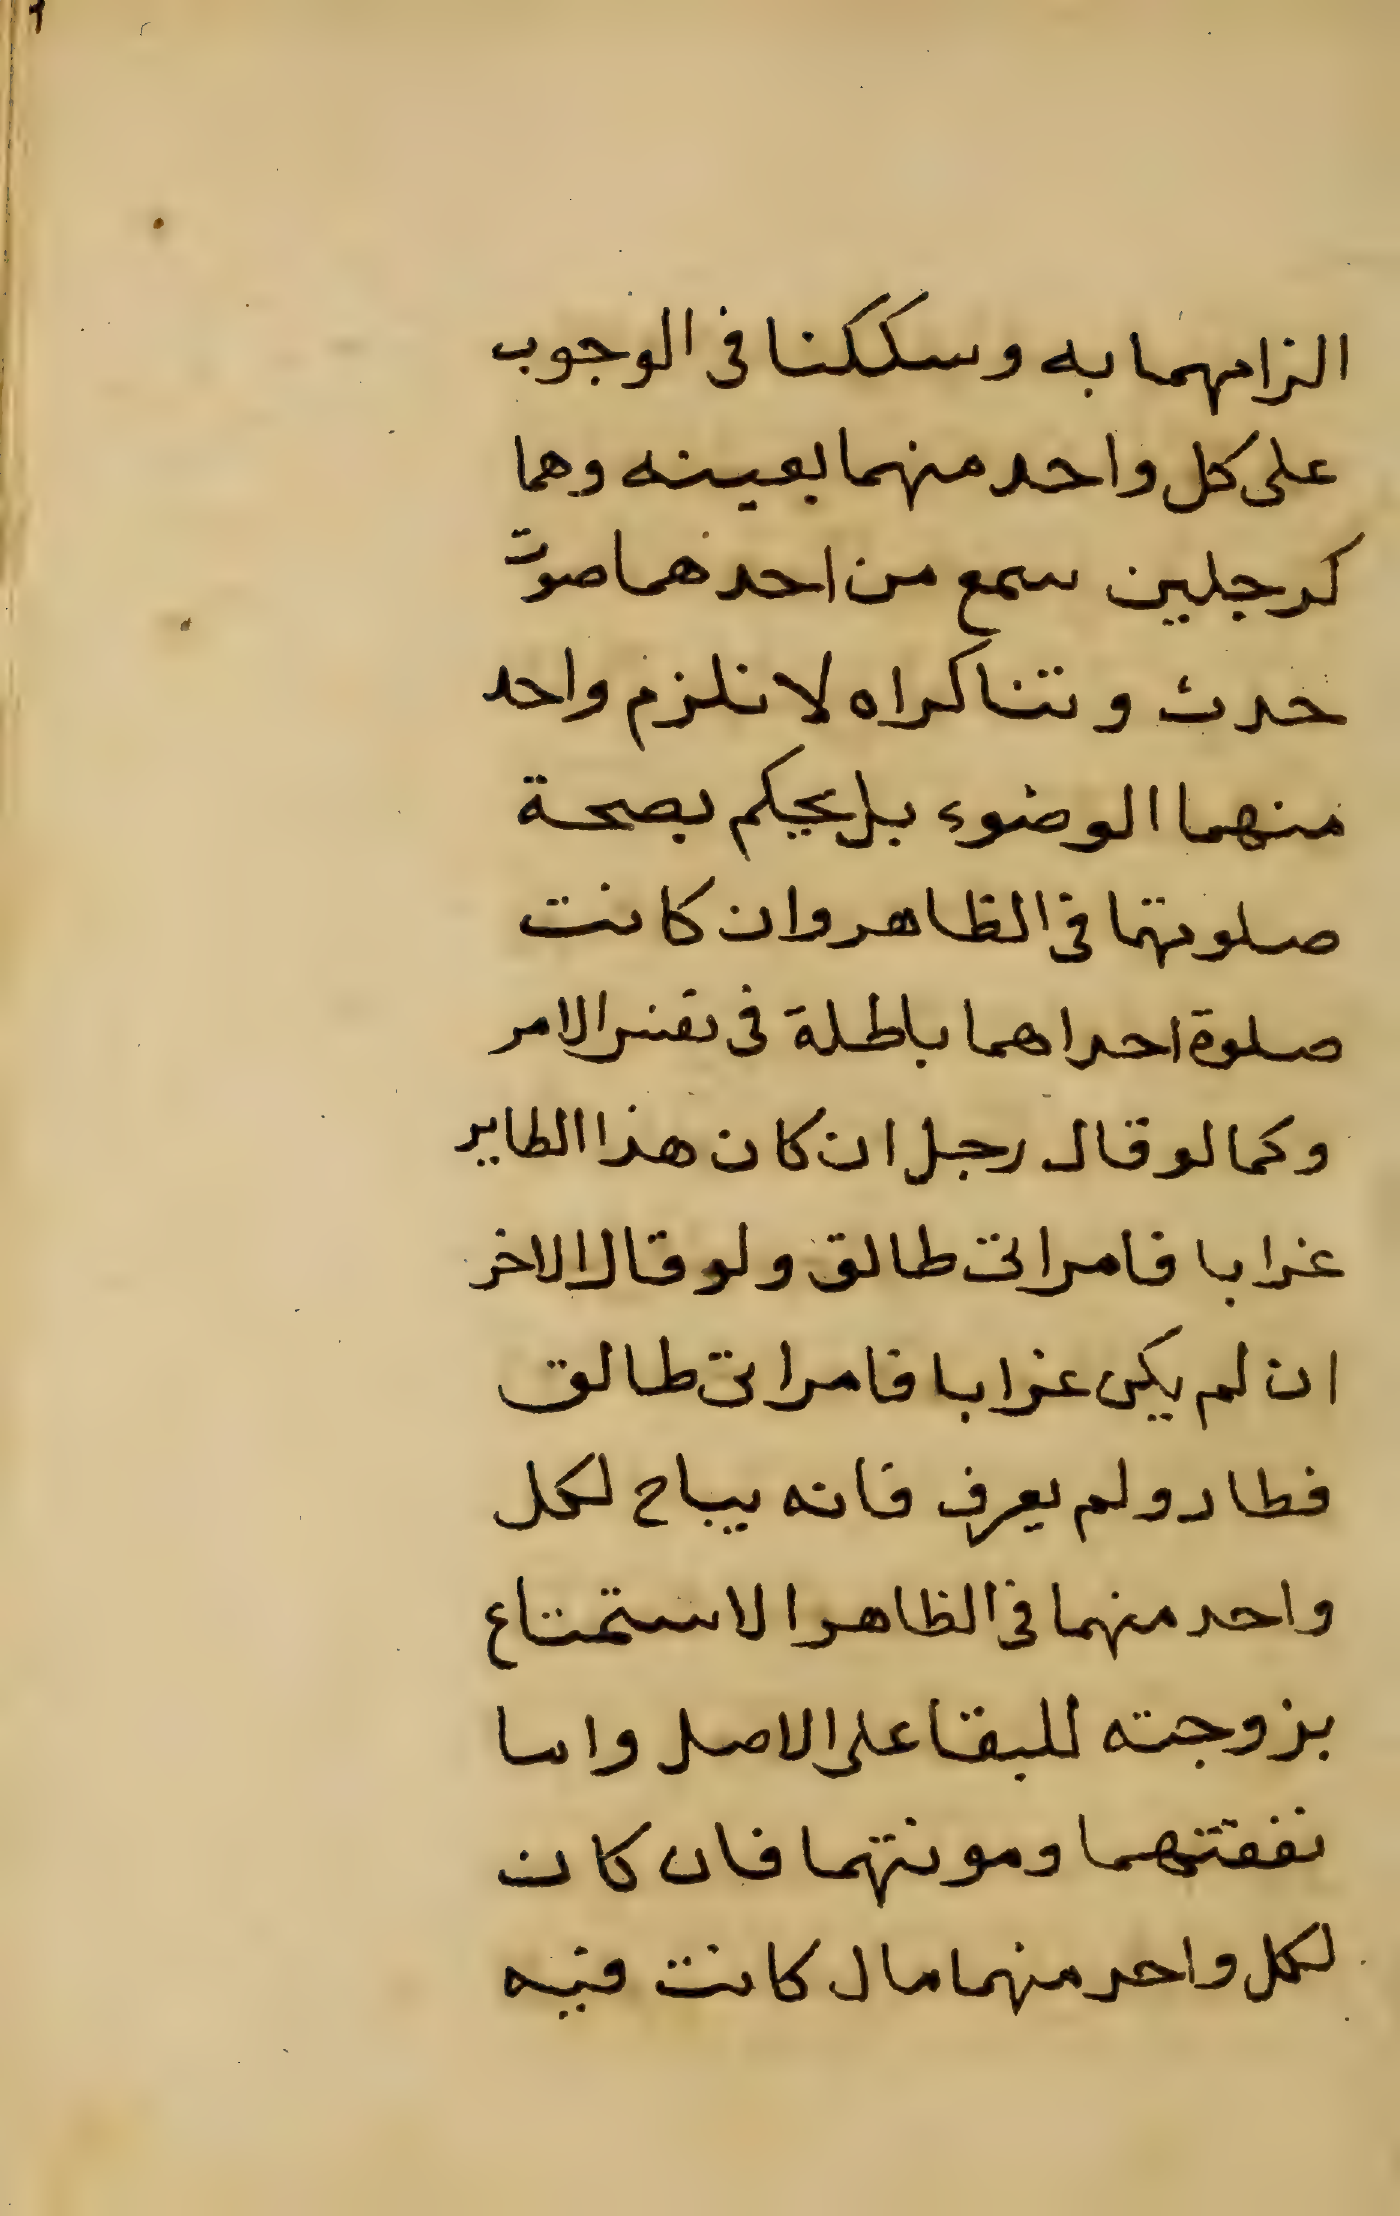 الزامهما به وسككنا فى الوجوب
على كل واحد منهما بعينه وهما
كرجلين سمع من احدهما صوت
حدث وتناكراه لا نلزم واحد
منهما الوضوء بل يحكم بصحة
صلوتهما فى الظاهر وان كانت
صلوة احداهما باطلة فى نفس الامر
وكما لو قال رجل ان كان هذا الطاير
غرابا فامراتى طالق ولو قال الاخر
ان لم يكن غرابا فامراتى طالق
فطار ولم يعرف فانه يباح لكل
واحد منهما فى الظاهر الاستمتاع
بزوجته للبقا على الاصل واما
نفقتهما ومونتهما فان كان
لكل واحد منهما مال كانت فيه